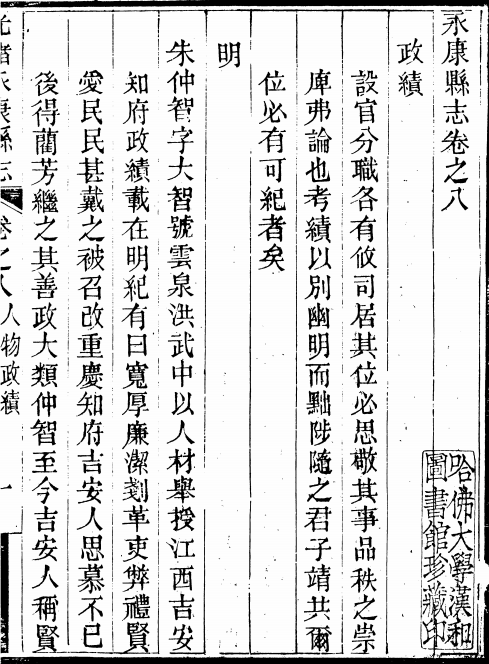 永康縣志卷之八
政績
設官分職各有攸司居其位必思敬其事品秩之崇
庳弗論也考績以別幽明而黜陟隨之君子靖共爾
位必有可紀者矣
明
朱仲智字大智號雲泉洪武中以人材舉授江西吉安
知府政績載在明紀有曰寬厚廉潔剗革吏弊禮賢
愛民民甚戴之被召改重慶知府吉安人思慕不已
後得藺芳繼之其善政大類仲智至今吉安人稱賢
光緒永康縣志
卷之八
人物政績
一
哈佛大學漢和
圖書館珍藏印